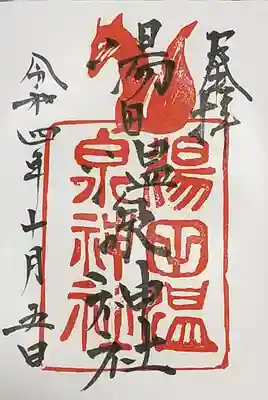 奉拝
湯田温泉神社
令和四年十月五日
湯田温
泉神社